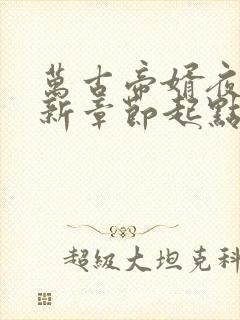 萬古帝婿夜
新章節起點
超級大坦克科